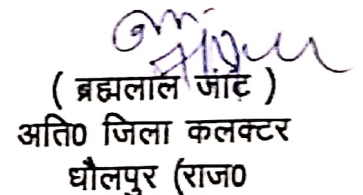 ( ब्रह्मलाल जाट )
अति0 जिला कलक्टर
धौलपुर (राज0